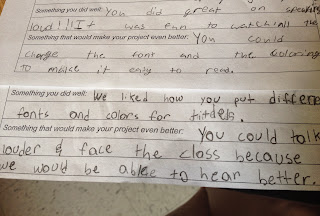 Something you did well: You did great on speaking
loud!!!! It was fun to watch!!! The
Something that would make your project even better: You could
change the font and the coloring
TO make it easy to read.
Something you did well: We liked how you put differene
fonts and colors for titdels.
Something that would make your project even better: You could talk
louder & face the class because
we would be able to hear better.